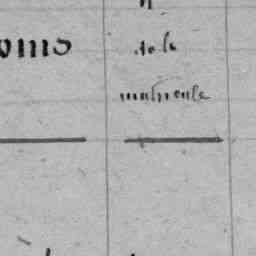 oms
de la
matricule